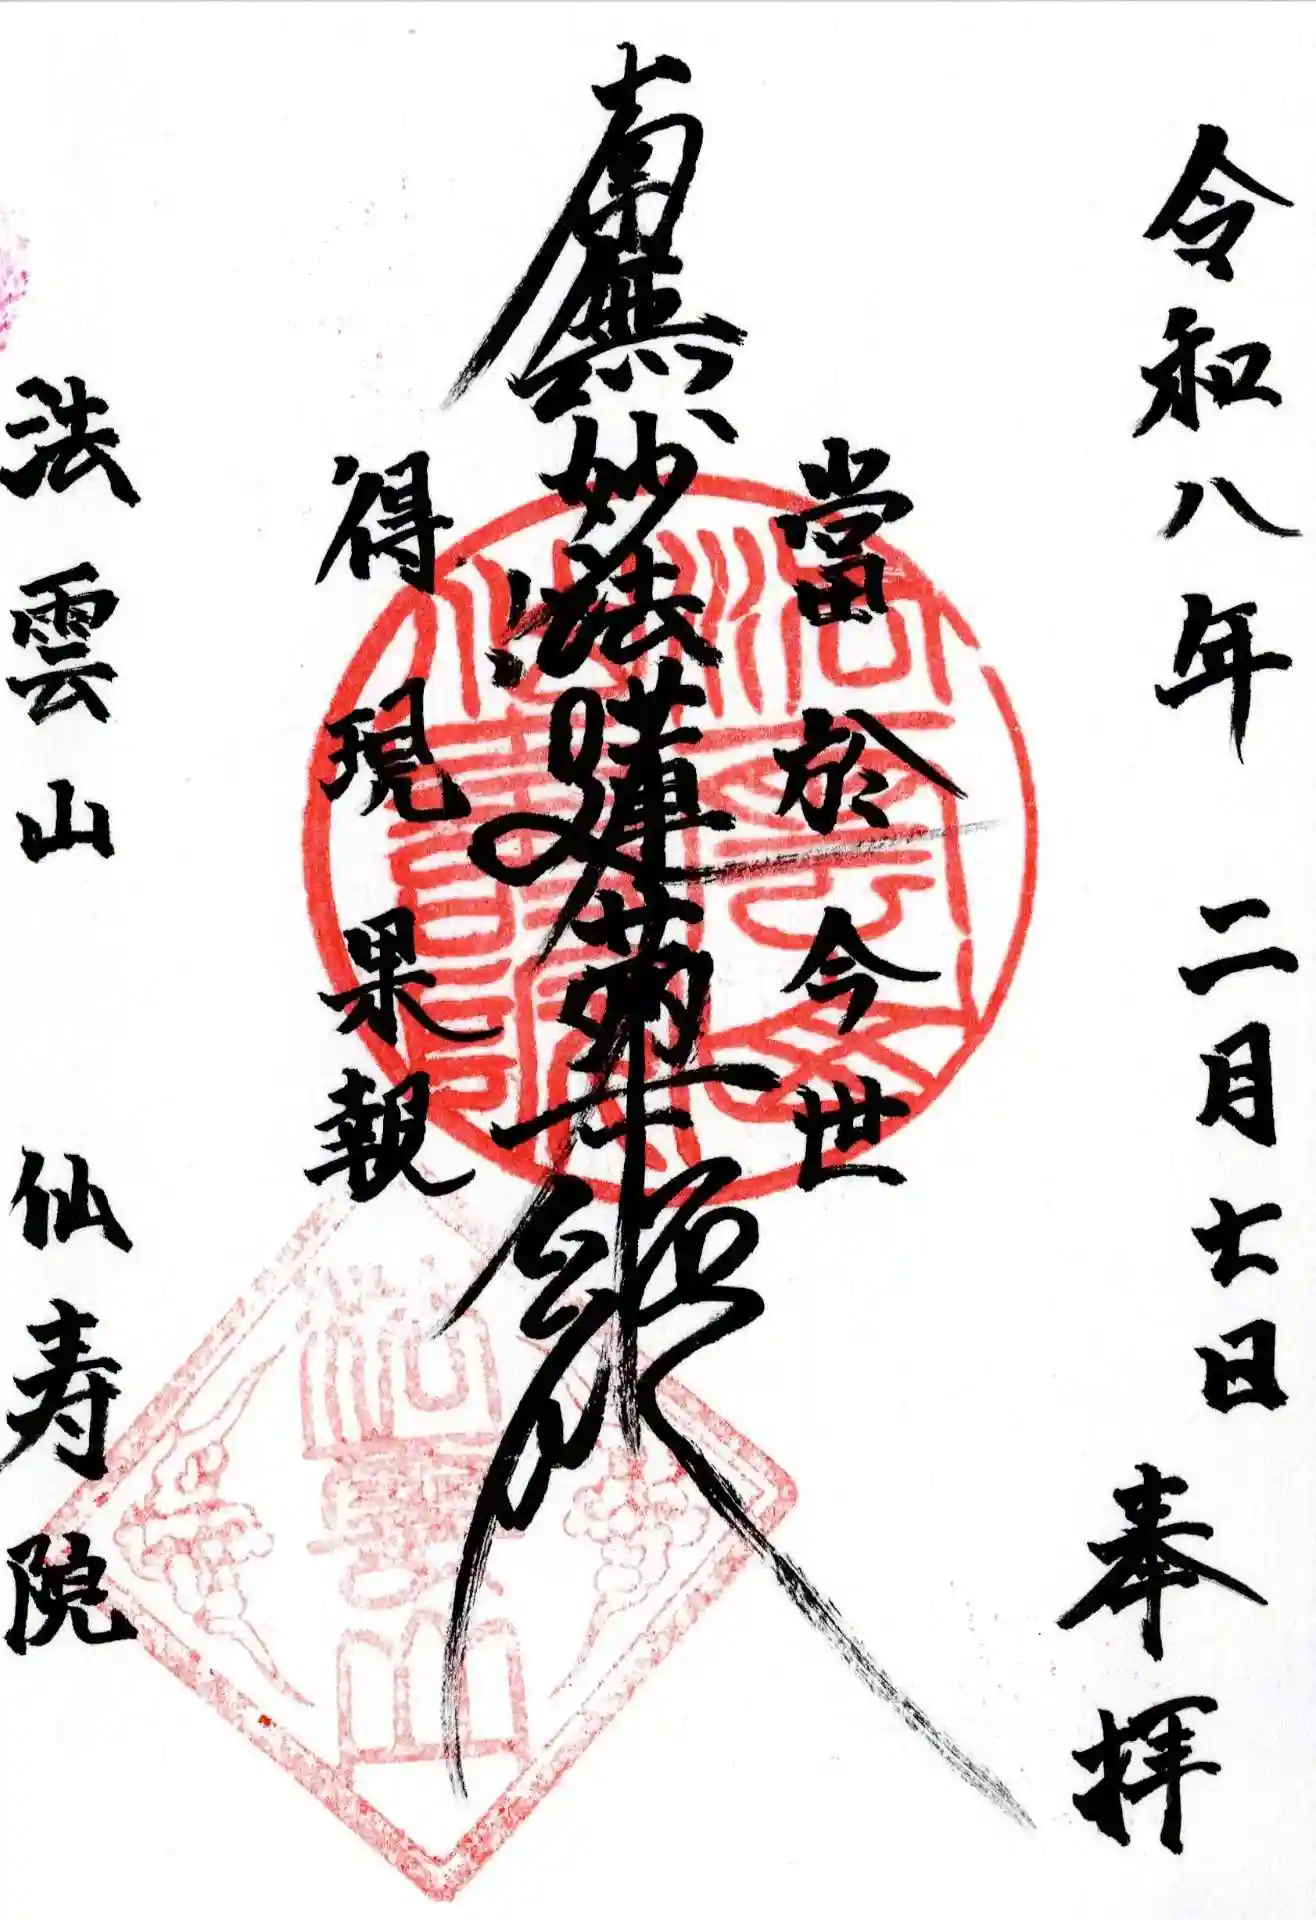 令和八年 二月七日 奉拝
當於今世
南無妙法蓮華経
得現果報
法雲山 仙寿院
法雲山